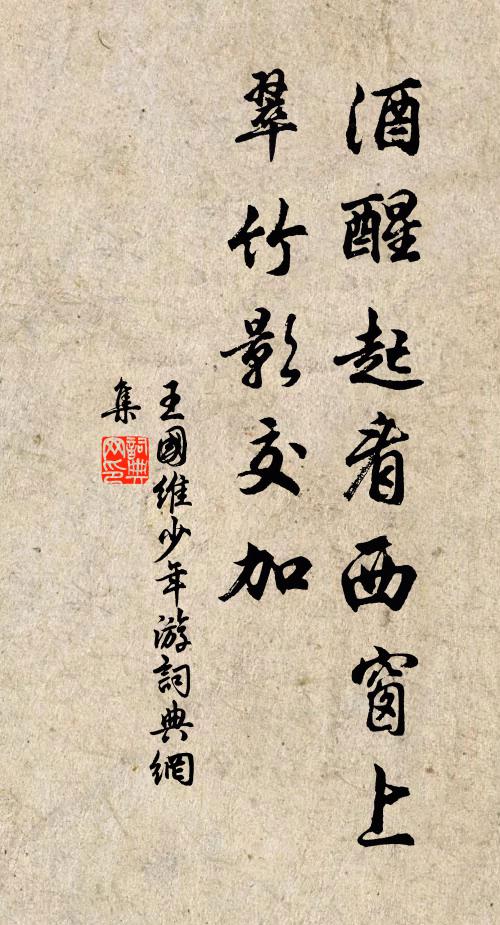 酒醒起看西窗上
翠竹影交加
王國維少年游詞典網
集
詞典网印